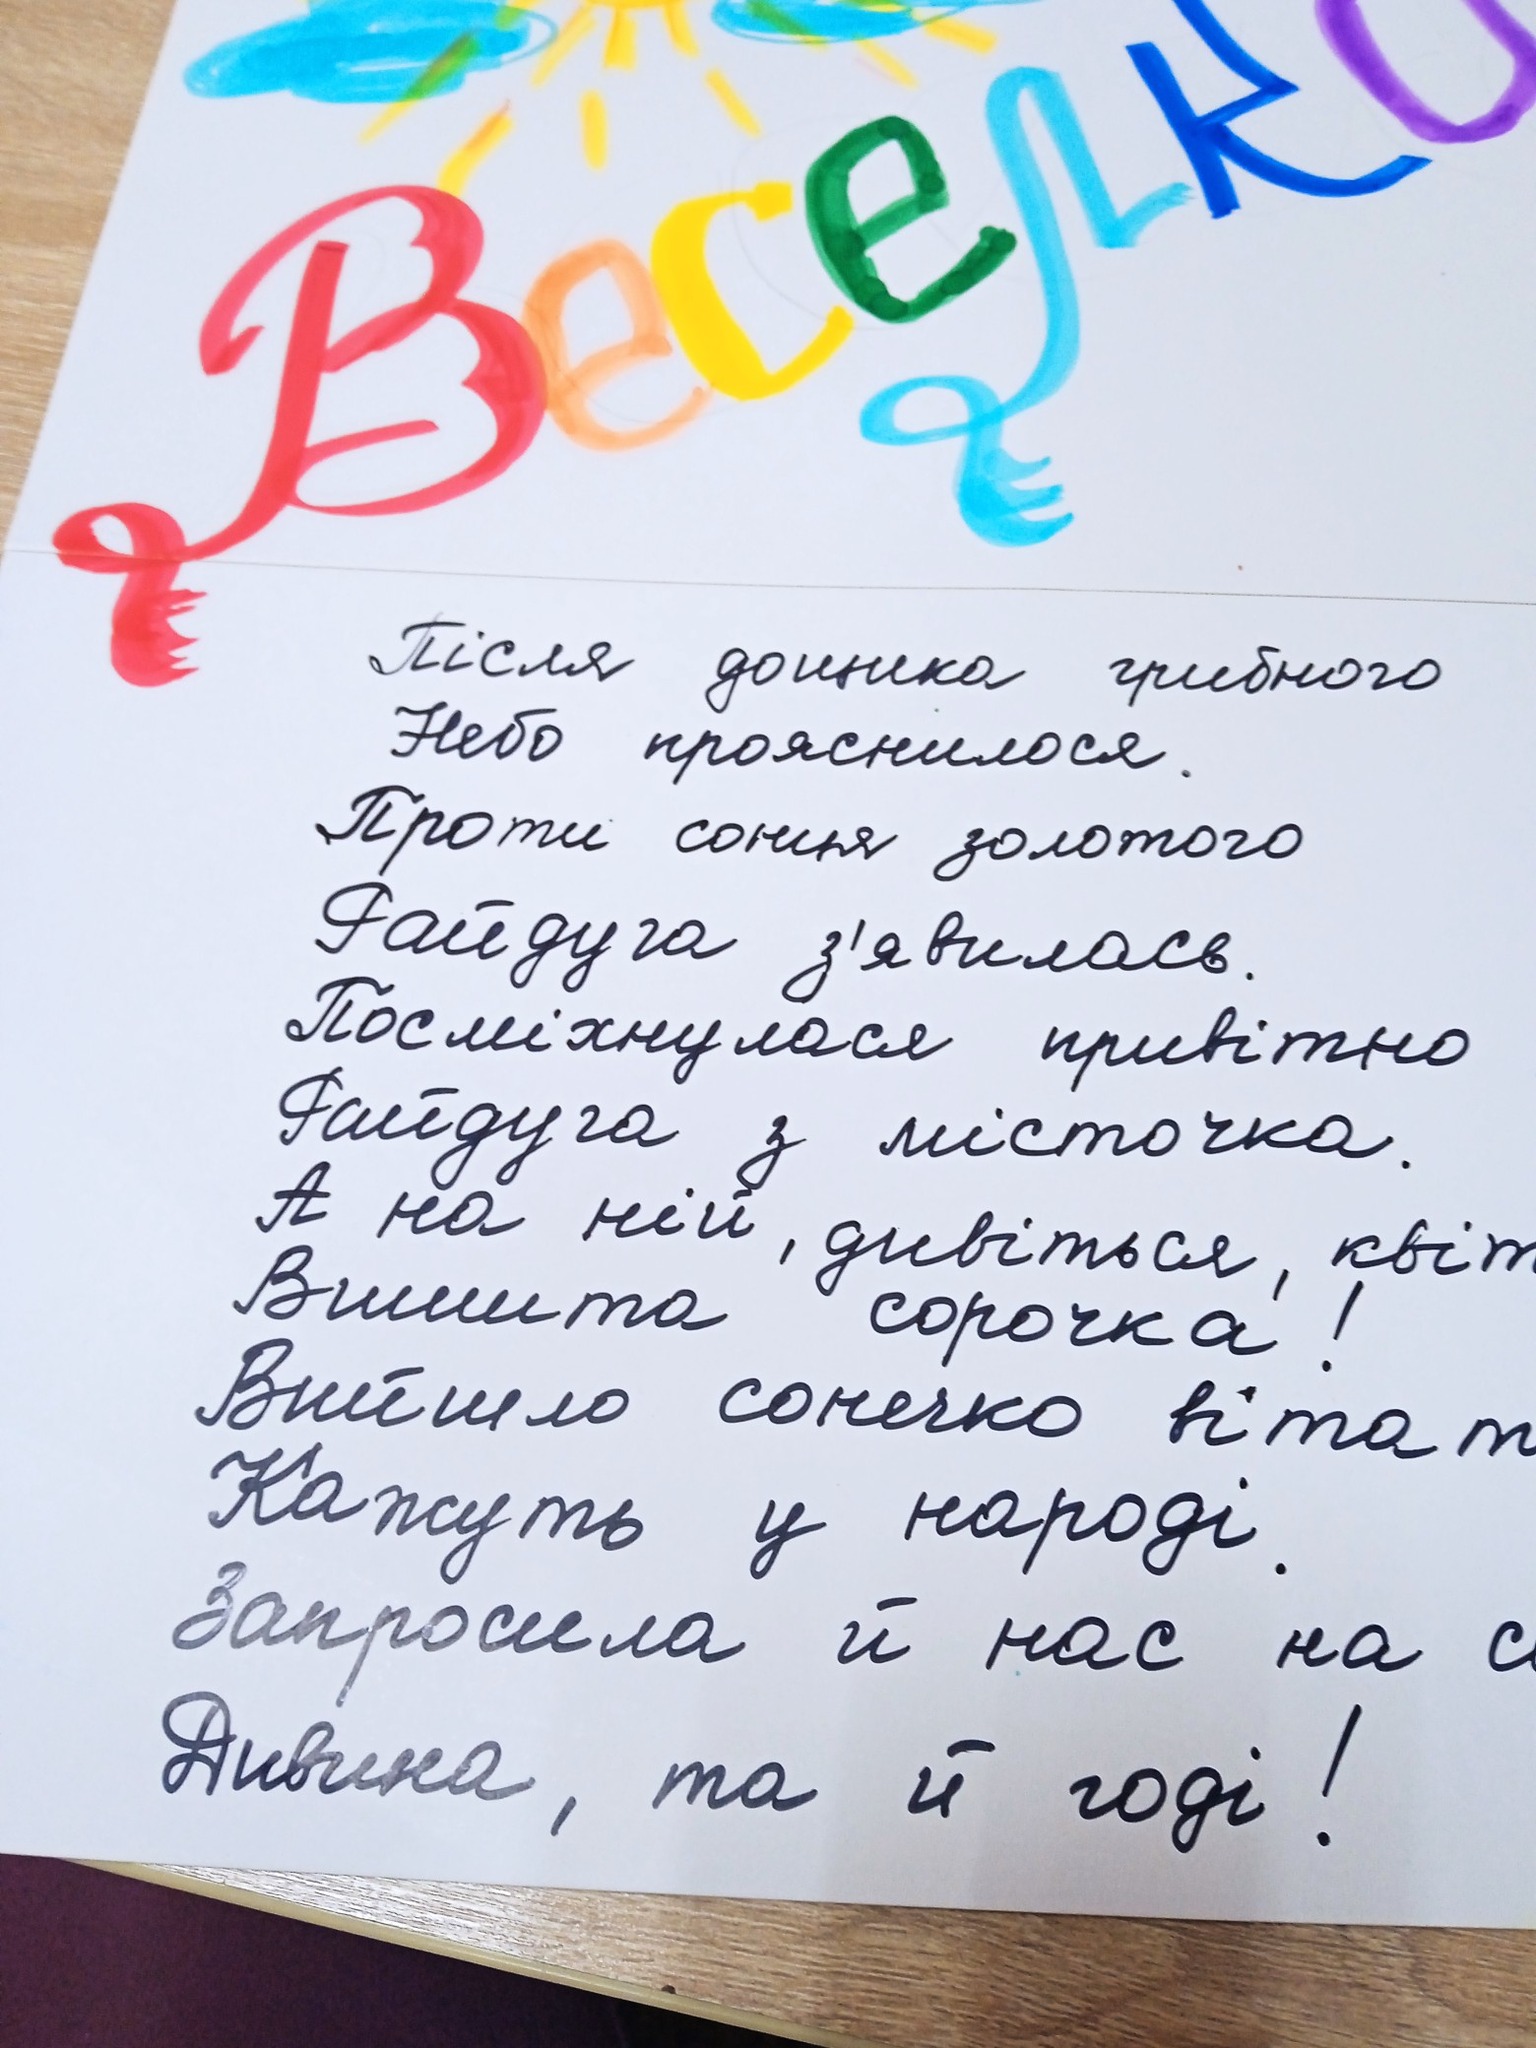 Веселка
Після дощика грибного
Небо прояснилося.
Проти сонця золотого
Райдуга з'явилась.
Посміхнулася привітно
Райдуга з місточка.
А на ній, дивіться, квіт
Вишита сорочка!
Вийшло сонечко вітат
Кажуть у народі.
Запросила й нас на с
Дивина, та й годі!